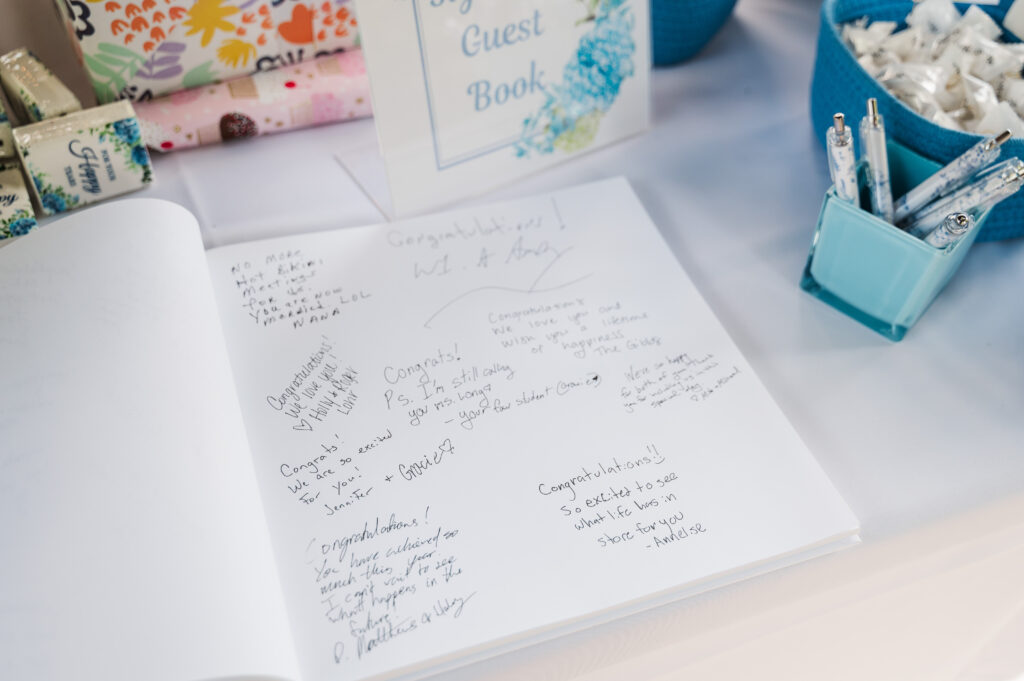 Guest
Book
Happy
Congratulations!
NO MORE
Hot Bikini
Meetings
for us.
You are NOW
married. LOL
NANA
Congratulations
We love you and
wish you a lifetime
of happiness
The Gibbs
Congratulations!
We love you!
♡ Holly & Roger
Congrats!
Ps. I'm still calling
you Ms. Long
- your fav student
We're so happy
for both of you. Thank
you for including us in this
special day
Congrats!
We are so excited
for you!
Jennifer + Gracie ♡
Congratulations!!
So excited to see
what life has in
store for you
- Annelise
Congratulations!
You have achieved so
much this year.
I can't wait to see
what happens in the
future!
D. Matthews &